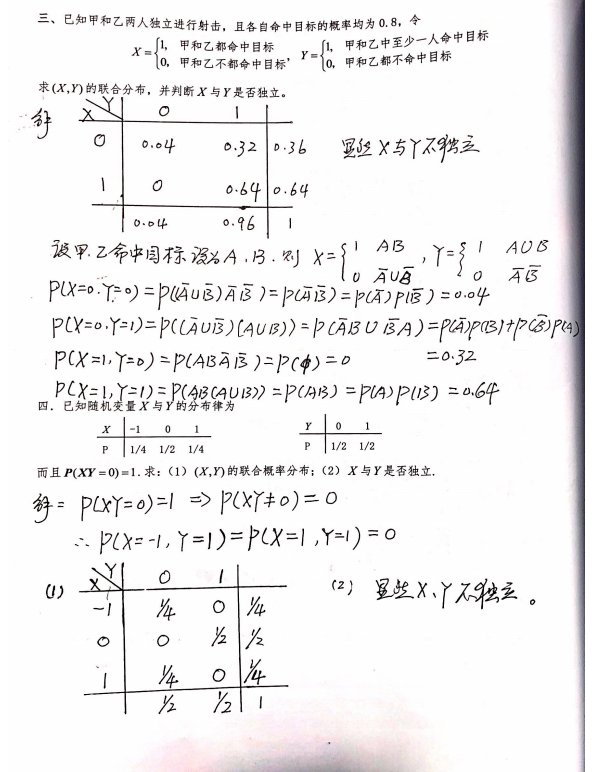 三、已知甲和乙两人独立进行射击，且各自命中目标的概率均为 0.8，令
X={1, 甲和乙都命中目标 0, 甲和乙不都命中目标, Y={1, 甲和乙中至少一人命中目标 0, 甲和乙都不命中目标
求(X,Y)的联合分布，并判断 X 与 Y 是否独立。
解 X Y 0 1
0 0.04 0.32 0.36 显然 X与Y不独立
1 0 0.64 0.64
0.04 0.96 1
设甲.乙命中目标设为A,B.则 X={1 AB 0 A̅∪B̅, Y={1 A∪B 0 A̅B̅
P(X=0.Y=0)=P((A̅∪B̅)A̅B̅)=P(A̅B̅)=P(A̅)P(B̅)=0.04
P(X=0,Y=1)=P((A̅∪B̅)(A∪B))=P(A̅B∪B̅A)=P(A̅)P(B)+P(B̅)P(A)
P(X=1,Y=0)=P(ABA̅B̅)=P(ϕ)=0 =0.32
P(X=1,Y=1)=P(AB(A∪B))=P(AB)=P(A)P(B)=0.64
四．已知随机变量 X 与 Y 的分布律为
X -1 0 1 Y 0 1
P 1/4 1/2 1/4 P 1/2 1/2
而且 P(XY=0)=1. 求：（1）(X,Y)的联合概率分布；（2）X 与 Y 是否独立.
解= P(XY=0)=1 ⇒ P(XY≠0)=0
∴ P(X=-1,Y=1)=P(X=1,Y=1)=0
(1) X Y 0 1 (2) 显然X、Y不独立。
-1 1/4 0 1/4
0 0 1/2 1/2
1 1/4 0 1/4
1/2 1/2 1